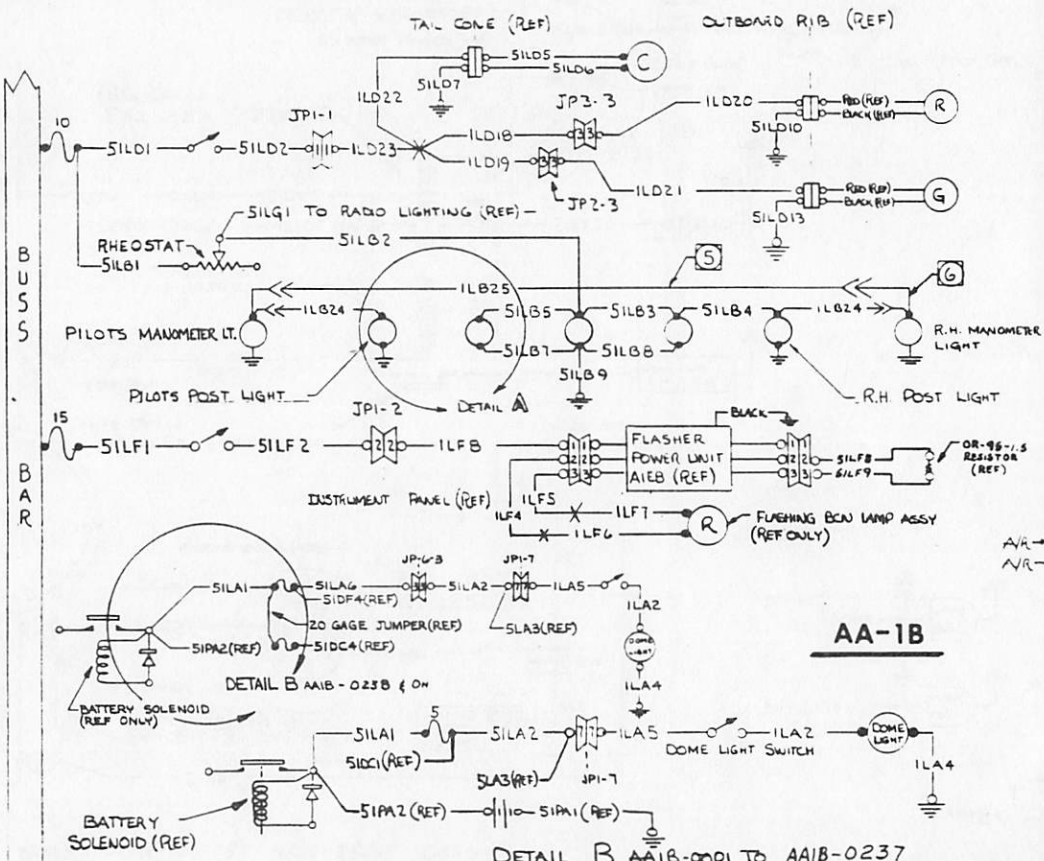 TAIL CONE (REF)
OUTBOARD RIB (REF)
51LD5
51LD6
C
51LD7
1LD22
JP3-3
1LD20
RED (REF)
BLACK (REF)
R
10
JP1-1
1LD18
33
51LD10
51LD1
51LD2
1LD23
1LD19
33
1LD21
RED (REF)
BLACK (REF)
G
JP2-3
51LD13
51LG1 TO RADIO LIGHTING (REF)
RHEOSTAT
51LB2
51LB1
5
6
1LB25
1LB24
51LB5
51LB3
51LB4
1LB24
PILOTS MANOMETER LT.
R.H. MANOMETER
LIGHT
51LB7
51LB8
51LB9
PILOTS POST LIGHT
DETAIL A
R.H. POST LIGHT
BUSS BAR
15
JP1-2
BLACK
51LF1
51LF2
22
1LF8
FLASHER
POWER UNIT
A1EB (REF)
51LF8
51LF9
OR-95-1.5
RESISTOR
(REF)
INSTRUMENT PANEL (REF)
1LF5
1LF4
1LF7
1LF6
R
FLASHING BCN LAMP ASSY
(REF ONLY)
A/R
A/R
JP6-3
JP1-7
51LA1
51LA6
33
51LA2
77
1LA5
51DF4 (REF)
20 GAGE JUMPER (REF)
5LA3 (REF)
1LA2
51PA2 (REF)
51DC4 (REF)
DOME
LIGHT
AA-1B
DETAIL B AA1B-0238 & ON
1LA4
BATTERY SOLENOID
(REF ONLY)
51LA1
5
51LA2
77
1LA5
1LA2
DOME
LIGHT
51DC1 (REF)
DOME LIGHT SWITCH
5LA3 (REF)
JP1-7
1LA4
51PA2 (REF)
51PA1 (REF)
BATTERY
SOLENOID (REF)
DETAIL B AA1B-0001 TO AA1B-0237